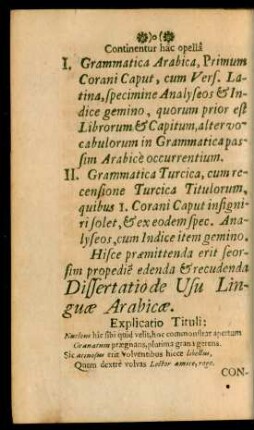 )o(
Continentur hâc opellâ
I. Grammatica Arabica, Primum
Corani Caput, cum Vers. La-
tina, specimine Analyseos & In-
dice gemino, quorum prior est
Librorum & Capitum, alter vo-
cabulorum in Grammatica pas-
sim Arabicè occurrentium.
II. Grammatica Turcica, cum re-
censione Turcica Titulorum,
quibus I. Corani Caput insigni-
ri solet, & ex eodem spec. Ana-
lyseos, cum Indice item gemino.
Hisce præmittenda erit seor-
sim propediè edenda & recudenda
Dissertatio de Usu Lin-
guæ Arabicæ.
Explicatio Tituli:
hic sibi quid velit, hoc commonstrat apertum
Granatum prægnans, plurima grana gerens.
Sic erit volventibus hicce libellus,
Quem dextrè volvas Lector amice, rogo.
CON-